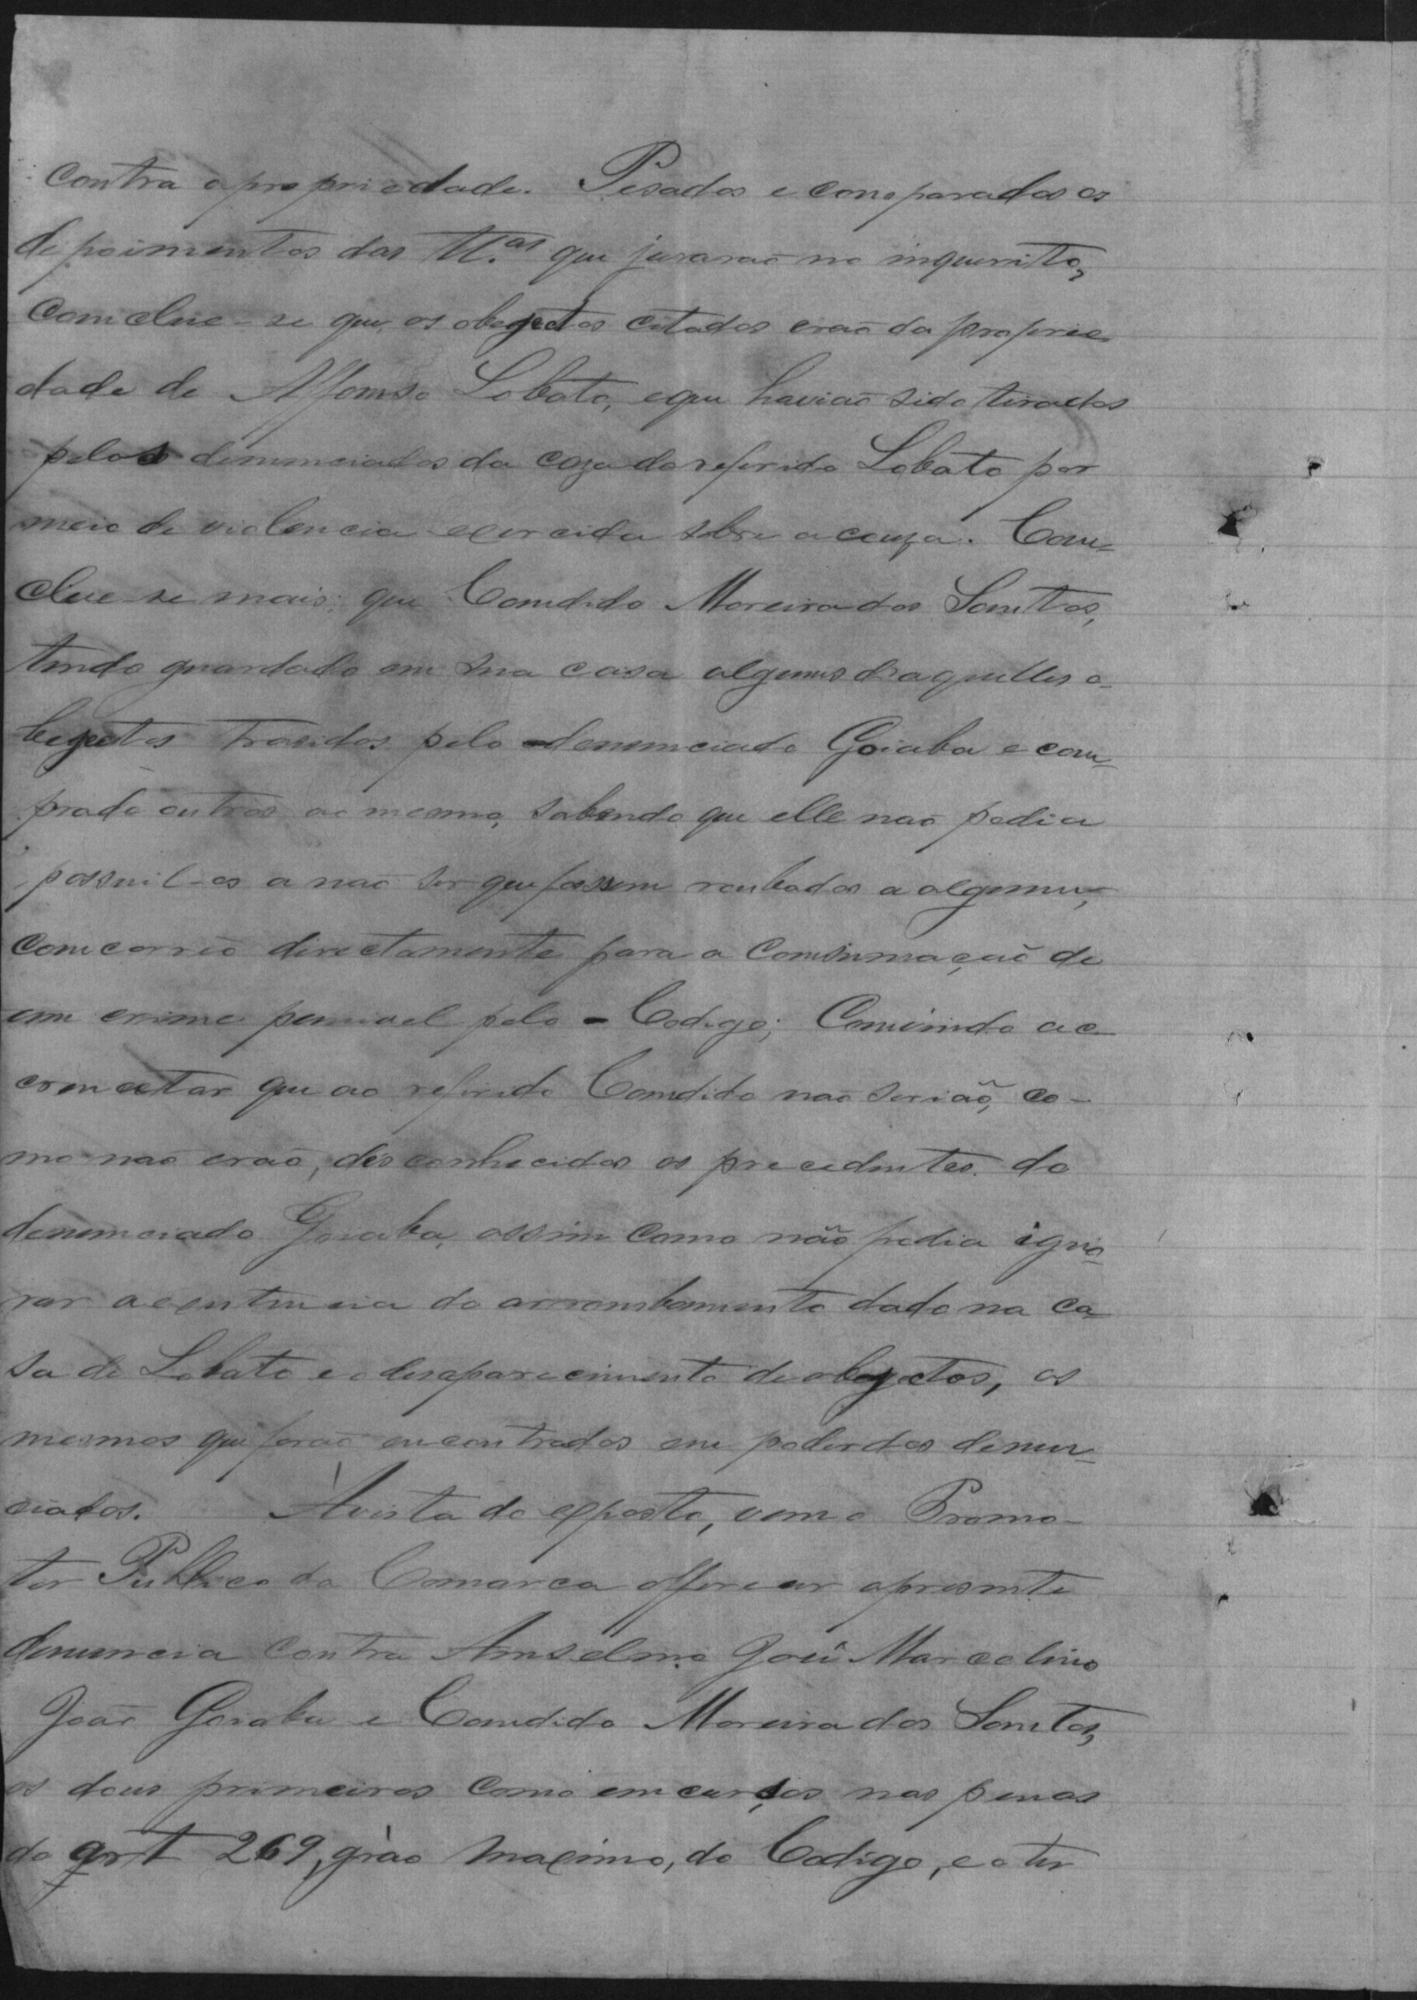 contra a propriedade. Pesados e comparados os
depoimentos das tt.as que jurarão no inquerito,
comclue-se que os obegectos citados erão da proprie
dade de Affomso Lobato, e que havião sido tirados
pelos denunciados da caza do referido Lobato por
meio de violencia exercida sobre a couza. Com=
clue-se mais: que Comdido Moreira dos Somtos,
tendo guardado em sua casa algums d'aquelles o-
begetos trasidos pelo denunciado Goiaba e com-
prado outros ao mesmo, sabendo que elle não podia
possuil-os a não ser que fossem roubados a algum,
comcorreo directamente para a comsumação de
um crime punivel pelo Codigo; Comvindo ac-
crescentar que ao referido Comdido não serião, co-
mo não erão, desconhecidos os precedentes do
denunciado Goiaba, assim como não podia igno-
rar a existencia do arrombamento dado na ca-
sa de Lobato e o desaparecimento de obegectos, os
mesmos que forão encontrados em poder dos denun-
ciados. Á vista do exposto, vem o Promo-
tor Publico da Comarca offerecer a presente
denuncia contra Amselmo José Marcolino
João Goiaba e Comdido Moreira dos Somtos,
os dous primeiros como emcursos nas penas
do art 269, gráo maximo, do Codigo, e o ter